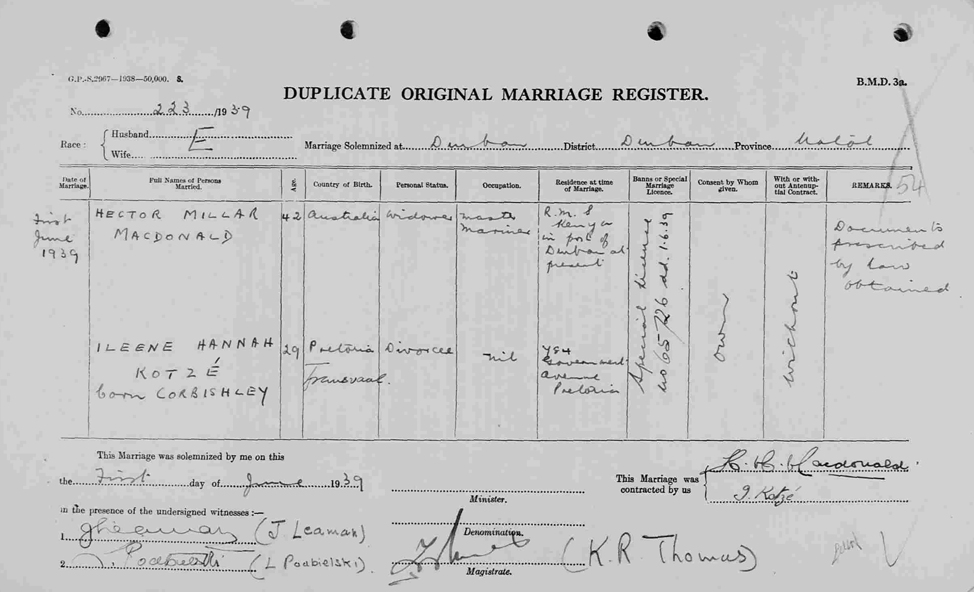 G.P.-S.2967—1938—50,000. S.
B.M.D. 3a.
DUPLICATE ORIGINAL MARRIAGE REGISTER.
No. 223 /1939
Race: Husband E
Wife
Marriage Solemnized at Durban District Durban Province Natal
Date of Marriage. Full Names of Persons Married. Age. Country of Birth. Personal Status. Occupation. Residence at time of Marriage. Banns or Special Marriage Licence. Consent by Whom given. With or without Antenuptial Contract. REMARKS. 54
First June 1939
HECTOR MILLAR
MACDONALD
42
Australia
Widower
Master
Mariner
R.M.S
Kenya
in port of
Durban at
present
Special Licence
no 65/26 dd. 1.6.39
own
without
Documents
prescribed
by law
obtained
ILEENE HANNAH
KOTZÉ
born CORBISHLEY
29
Pretoria
Transvaal.
Divorcee
nil
784
Government
Avenue
Pretoria
This Marriage was solemnized by me on this
the First day of June 1939
Minister.
This Marriage was contracted by us
H. H. Macdonald
I Kotzé
in the presence of the undersigned witnesses:—
1 (J Leaman)
Denomination.
2 L. Podbielski (L Podbielski)
Magistrate.
(K.R Thomas)